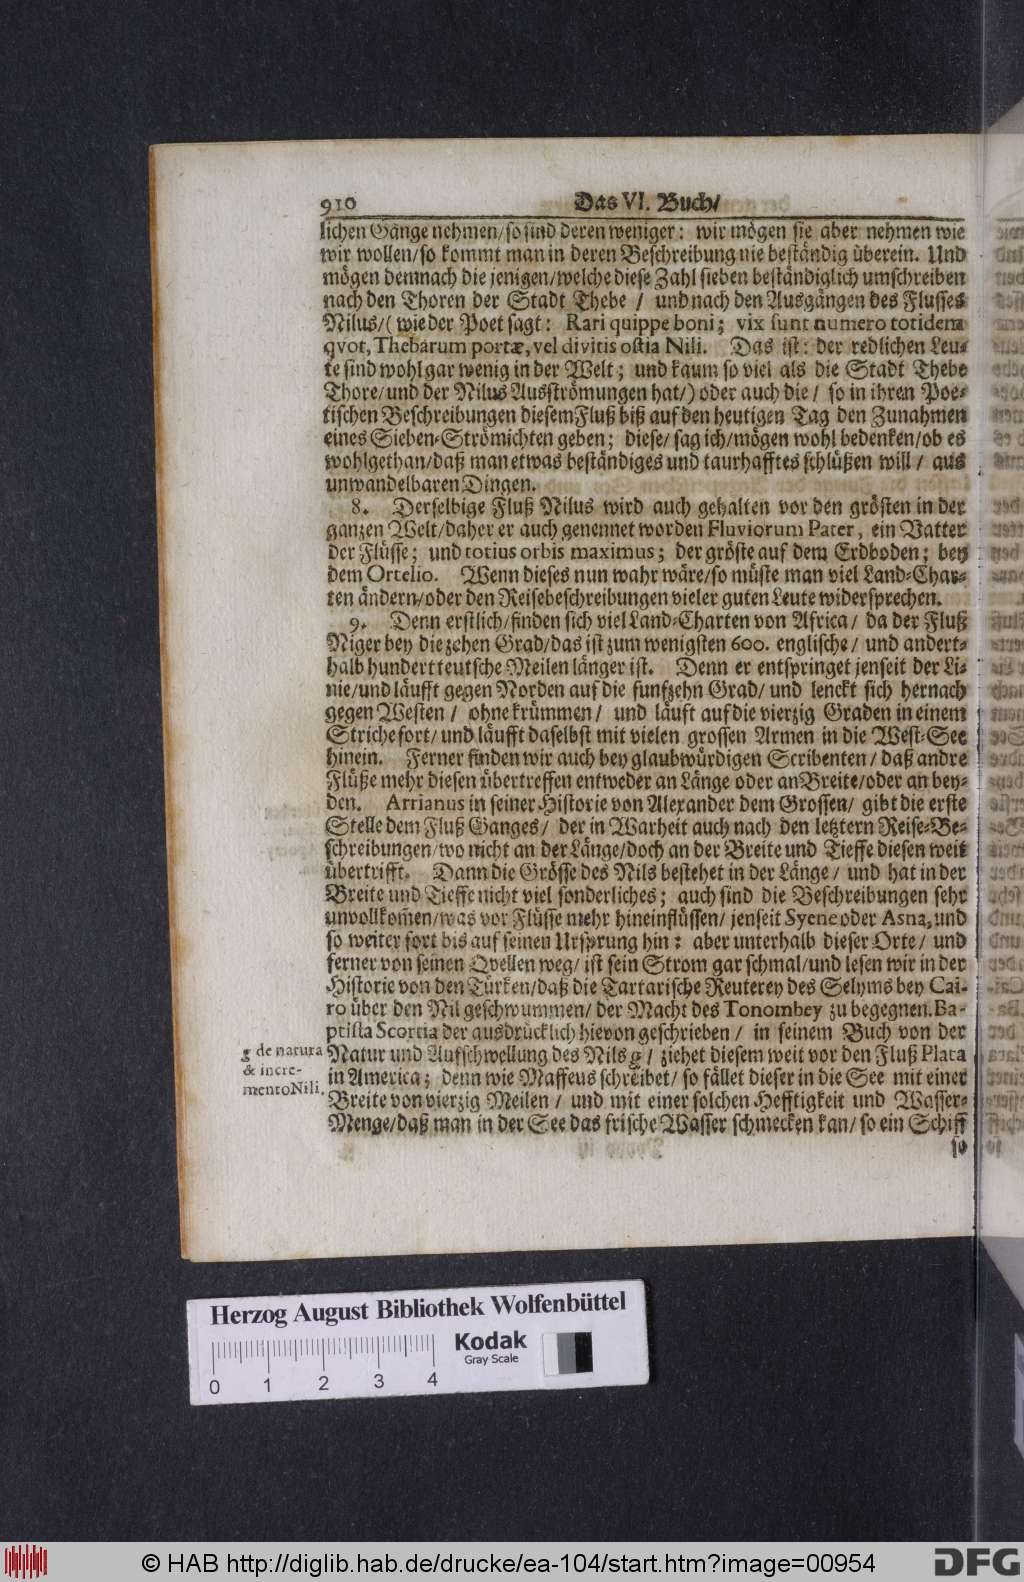 910 Das VI. Buch/
lichen Gänge nehmen/so sind deren weniger: wir mögen sie aber nehmen wie
wir wollen/so kommt man in deren Beschreibung nie beständig überein. Und
mögen demnach die jenigen/welche diese Zahl sieben beständiglich umschreiben
nach den Thoren der Stadt Thebe / und nach den Ausgängen des Flusses
Nilus/(wie der Poet sagt: Rari quippe boni; vix sunt numero totidem
qvot, Thebarum portæ, vel divitis ostia Nili. Das ist: der redlichen Leu-
te sind wohl gar wenig in der Welt; und kaum so viel als die Stadt Thebe
Thore/und der Nilus Ausströmungen hat/) oder auch die / so in ihren Poe-
tischen Beschreibungen diesem Fluß biß auf den heutigen Tag den Zunahmen
eines Sieben-Strömichten geben; diese/ sag ich/mögen wohl bedenken/ob es
wohlgethan/daß man etwas beständiges und taurhafftes schlüßen will / aus
unwandelbaren Dingen.
8. Derselbige Fluß Nilus wird auch gehalten vor den grösten in der
ganzen Welt/daher er auch genennet worden Fluviorum Pater, ein Vatter
der Flüsse; und totius orbis maximus; der gröste auf dem Erdboden; bey
dem Ortelio. Wenn dieses nun wahr wäre/so müste man viel Land-Char-
ten ändern/oder den Reisebeschreibungen vieler guten Leute widersprechen.
9. Denn erstlich/finden sich viel Land-Charten von Africa/ da der Fluß
Niger bey die zehen Grad/das ist zum wenigsten 600. englische/ und andert-
halb hundert teutsche Meilen länger ist. Denn er entspringet jenseit der Li-
nie/und läufft gegen Norden auf die funfzehn Grad/ und lenckt sich hernach
gegen Westen / ohne krümmen / und läuft auf die vierzig Graden in einem
Striche fort/ und läufft daselbst mit vielen grossen Armen in die West-See
hinein. Ferner finden wir auch bey glaubwürdigen Scribenten / daß andre
Flüße mehr diesen übertreffen entweder an Länge oder an Breite/oder an bey-
den. Arrianus in seiner Historie von Alexander dem Grossen/ gibt die erste
Stelle dem Fluß Ganges/ der in Warheit auch nach den letztern Reise-Be-
schreibungen/wo nicht an der Länge/doch an der Breite und Tieffe diesen weit
übertrifft. Dann die Grösse des Nils bestehet in der Länge / und hat in der
Breite und Tieffe nicht viel sonderliches; auch sind die Beschreibungen sehr
unvollkomen/was vor Flüsse mehr hineinflüssen/ jenseit Syene oder Asna, und
so weiter fort bis auf seinen Ursprung hin: aber unterhalb dieser Orte/ und
ferner von seinen Qvellen weg/ ist sein Strom gar schmal/und lesen wir in der
Historie von den Türken/daß die Tartarische Reuterey des Selyms bey Cai-
ro über den Nil geschwummen/ der Macht des Tonombey zu begegnen. Ba-
ptista Scortia der ausdrücklich hievon geschrieben / in seinem Buch von der
g de natura Natur und Aufschwellung des Nils g / ziehet diesem weit vor den Fluß Plata
& incre- in America; denn wie Maffeus schreibet/ so fället dieser in die See mit einer
mento Nili. Breite von vierzig Meilen / und mit einer solchen Hefftigkeit und Wasser-
Menge/daß man in der See das frische Wasser schmecken kan/ so ein Schiff
so
Herzog August Bibliothek Wolfenbüttel
Kodak
Gray Scale
0 1 2 3 4
© HAB http://diglib.hab.de/drucke/ea-104/start.htm?image=00954
DFG